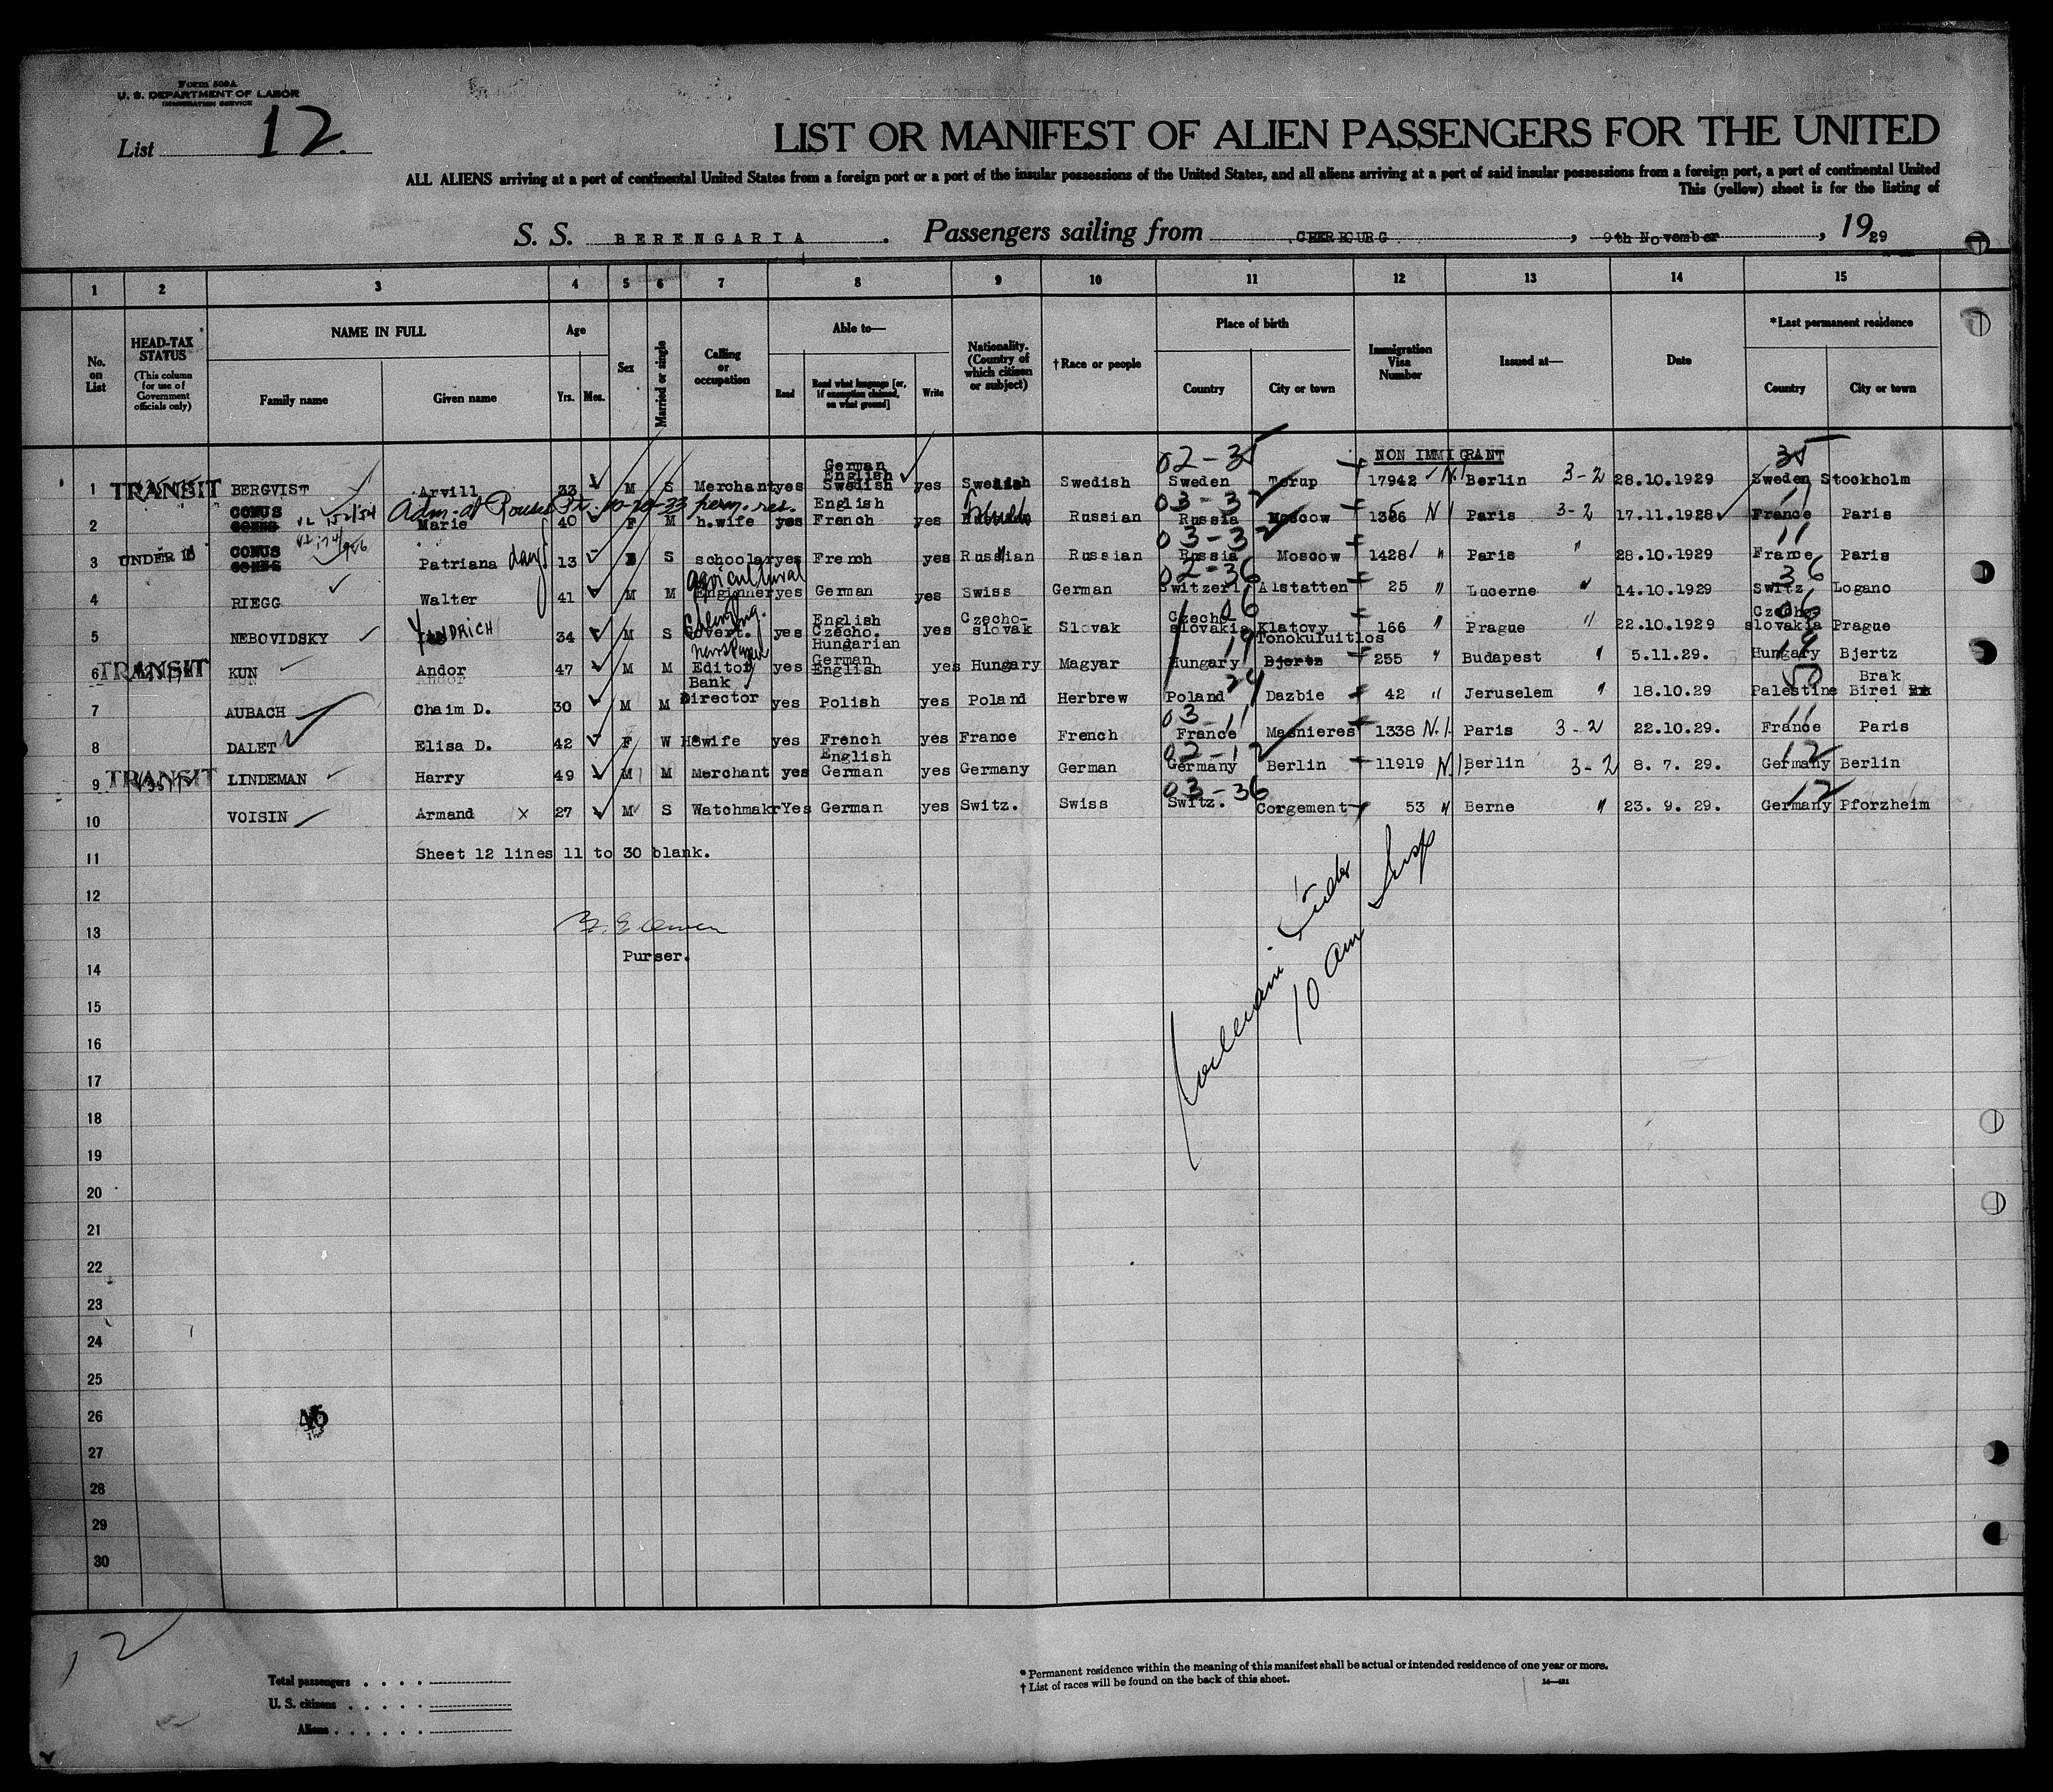 Form 500A
U. S. DEPARTMENT OF LABOR
IMMIGRATION SERVICE
List 12.
LIST OR MANIFEST OF ALIEN PASSENGERS FOR THE UNITED
ALL ALIENS arriving at a port of continental United States from a foreign port or a port of the insular possessions of the United States, and all aliens arriving at a port of said insular possessions from a foreign port, a port of continental United
This (yellow) sheet is for the listing of
S. S. BERENGARIA. Passengers sailing from CHERBOURG, 9th November, 1929
1 2 3 4 5 6 7 8 9 10 11 12 13 14 15
No. on List
HEAD-TAX STATUS (This column for use of Government officials only)
NAME IN FULL
Family name Given name
Age
Yrs. Mos.
Sex
Married or single
Calling or occupation
Able to—
Read Read what language [or, if exemption claimed, on what ground] Write
Nationality. (Country of which citizen or subject)
†Race or people
Place of birth
Country City or town
Immigration Visa Number
Issued at—
Date
*Last permanent residence
Country City or town
NON IMMIGRANT
02-35 35
1 TRANSIT BERGVIST Arvill 33 M S Merchant yes German English Swedish yes Swedish Swedish Sweden Torup 17942 Berlin 3-2 28.10.1929 Sweden Stockholm
Adm. at Rouses Pt. 10-20-33 perm. res.
03-32 11
2 COMUS Marie 40 F M h.wife yes English French yes Russian Russia Moscow 1386 N1 Paris 3-2 17.11.1928 France Paris
03-32 11
3 UNDER 16 COMUS Patriana 13 S scholar yes French yes Russian Russian Russia Moscow 1428 " Paris " 28.10.1929 France Paris
02-36 36
4 RIEGG Walter 41 M M agricultural Enginner yes German yes Swiss German Switzerl Alstatten 25 " Lucerne " 14.10.1929 Switz. Logano
06 06
5 NEBOVIDSKY JINDRICH 34 M S Govert. yes English Czecho. yes Czecho-slovak Slovak Czecho-slovakia Klatovy 166 " Prague " 22.10.1929 Czecho-slovakia Prague
19 19
6 TRANSIT KUN Andor 47 M M newspaper Editor yes Hungarian German English yes Hungary Magyar Hungary Tonokufuitlos Bjertz 255 " Budapest " 5.11.29. Hungary Bjertz
24 50
7 AUBACH Chaim D. 30 M M Bank Director yes Polish yes Poland Herbrew Poland Dazbie 42 " Jeruselem " 18.10.29 Palestine Brak Birei
03-11 11
8 DALET Elisa D. 42 F W Hswife yes French yes France French France Masnieres 1338 N.1. Paris 3-2 22.10.29. France Paris
02-12 12
9 TRANSIT LINDEMAN Harry 49 M M Merchant yes English German yes Germany German Germany Berlin 11919 N.1. Berlin 3-2 8. 7. 29. Germany Berlin
03-36 12
10 VOISIN Armand X 27 M S Watchmakr Yes German yes Switz. Swiss Switz. Corgement 53 " Berne " 23. 9. 29. Germany Pforzheim
11 Sheet 12 lines 11 to 30 blank.
12
13
Purser.
14
10 am
15
16
17
18
19
20
21
22
23
24
25
26
27
28
29
30
12
Total passengers
U. S. citizens
Aliens
*Permanent residence within the meaning of this manifest shall be actual or intended residence of one year or more.
†List of races will be found on the back of this sheet.